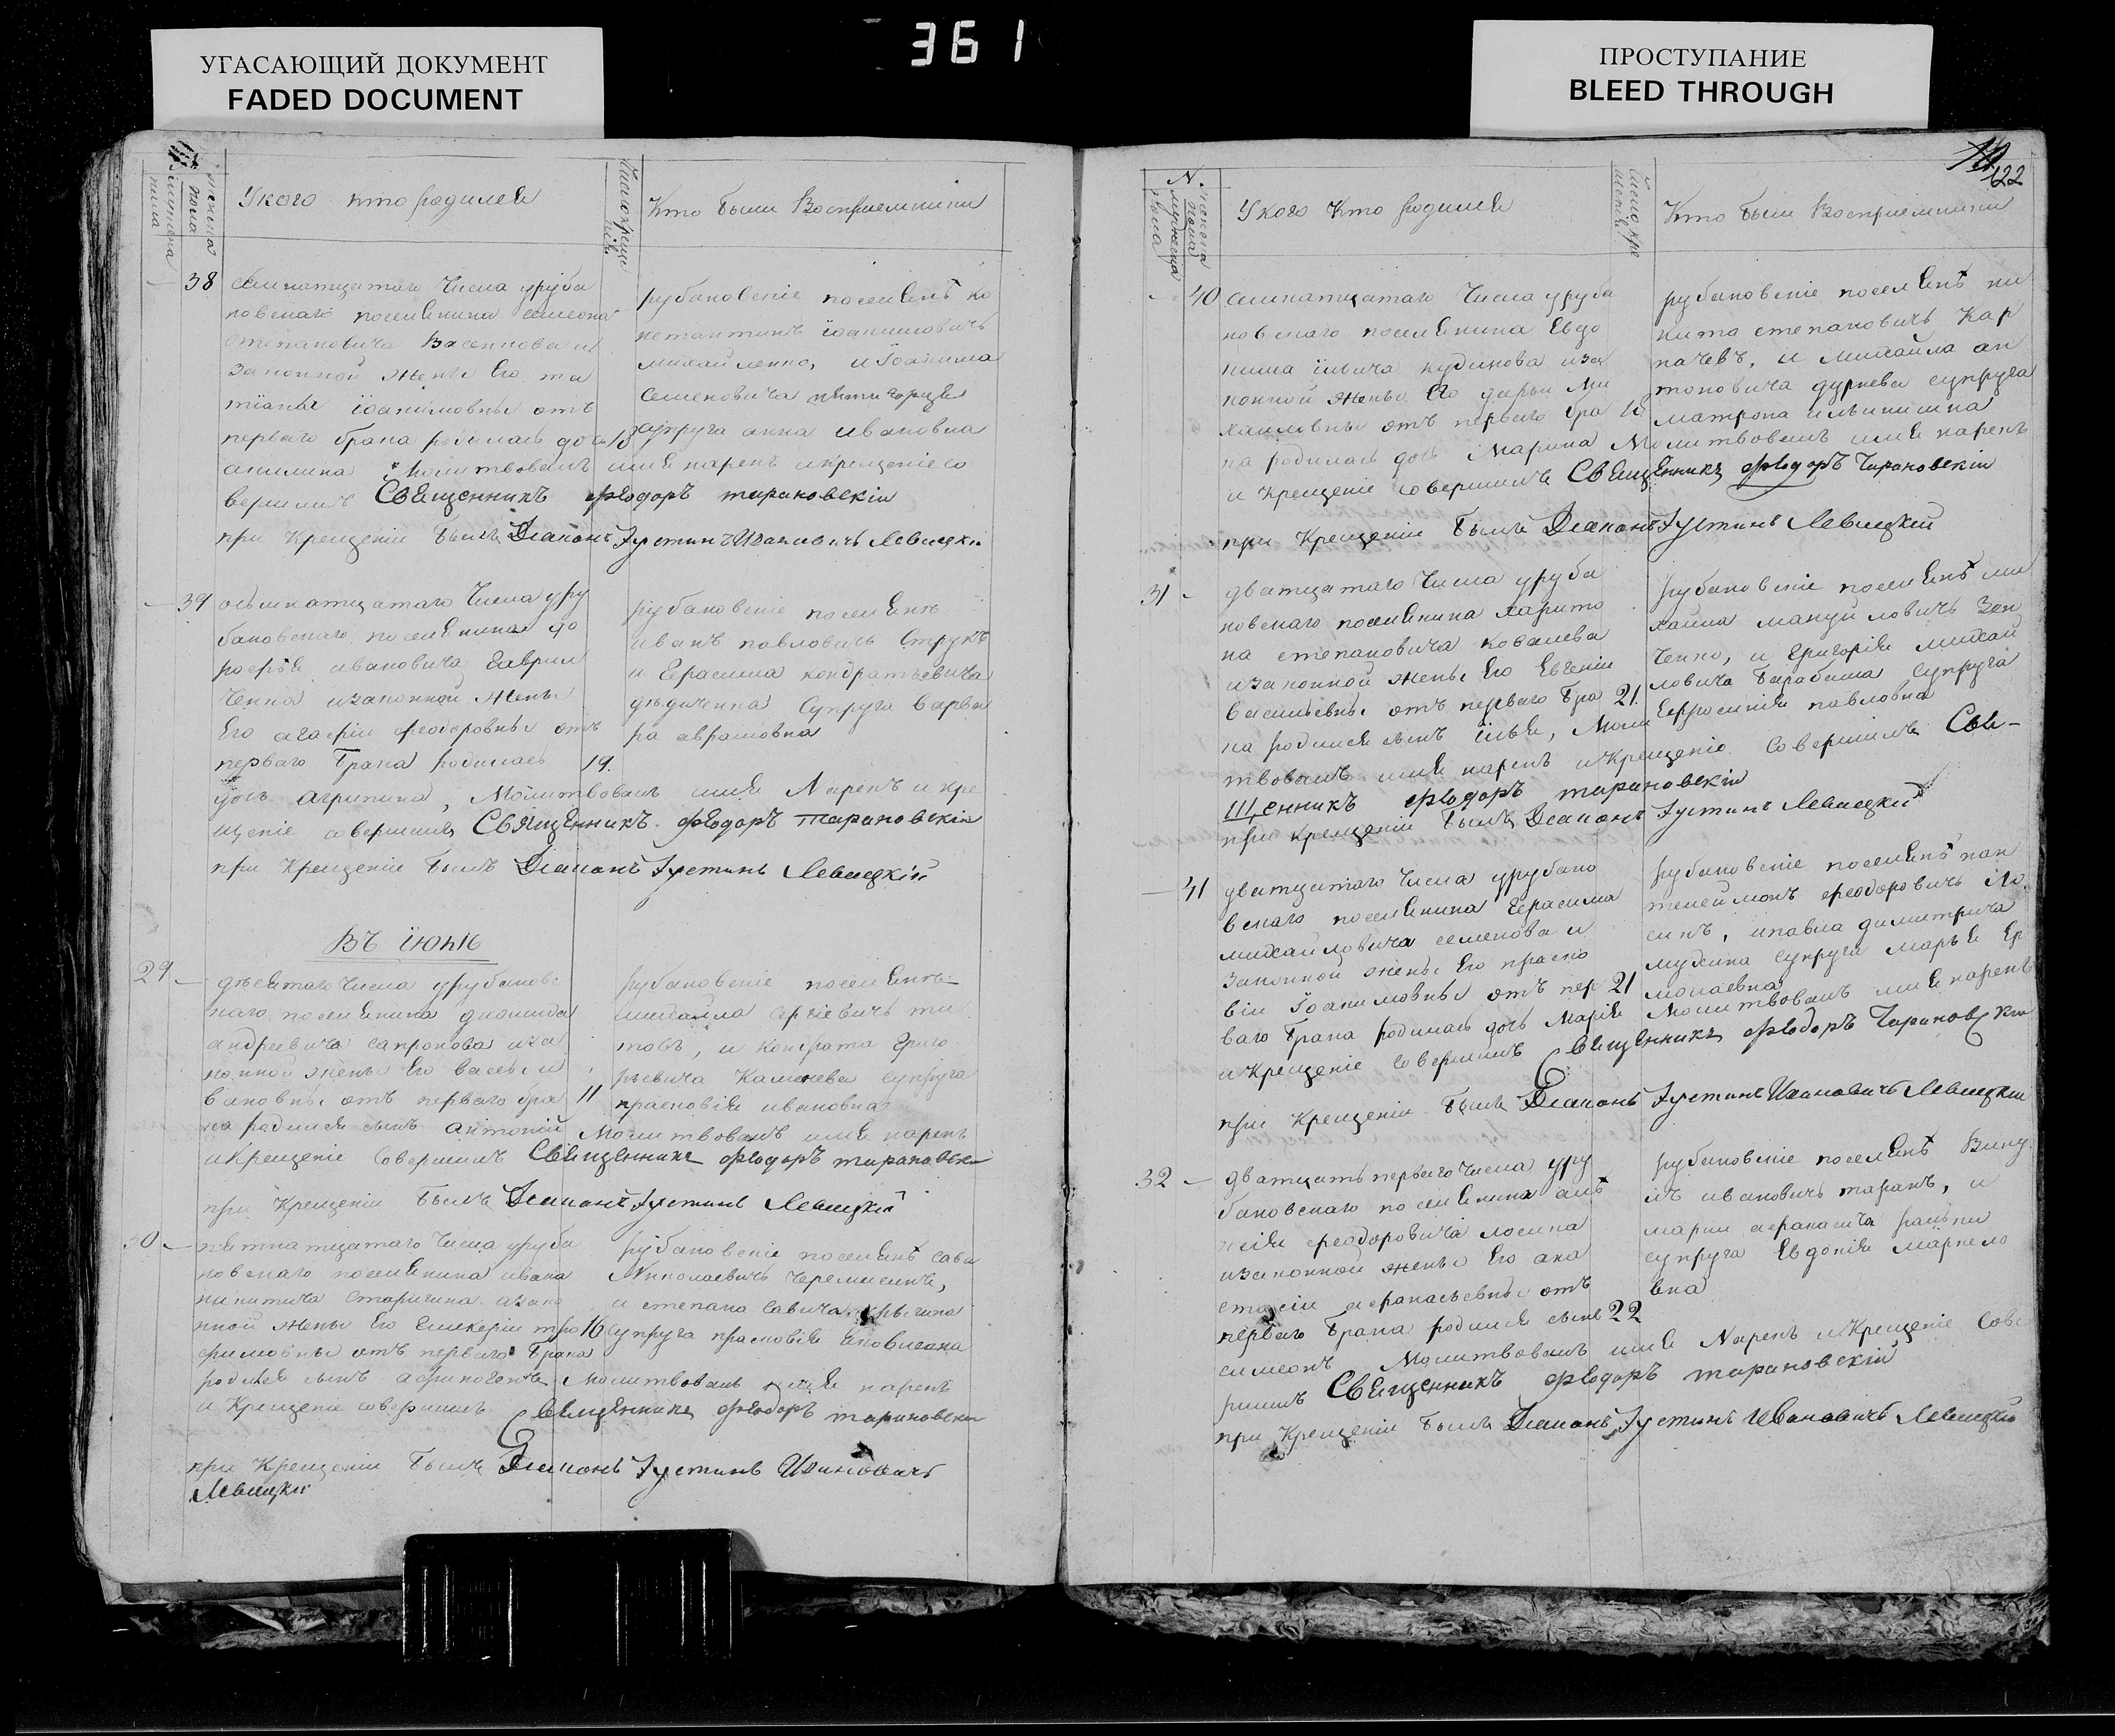 УГАСАЮЩИЙ ДОКУМЕНТ
FADED DOCUMENT
361
ПРОСТУПАНИЕ
BLEED THROUGH
122
У кого кто родился
Кто были Восприемники
38
семнатцатаго Числа уруба
новскаго поселянина симеона
степановича
законной жены Его та
тіаны іоакимовны отъ
перваго брака родилась дочь
акилина Молитвовалъ имя нарекъ икрещеніе со
вершилъ Священникъ Фѣодоръ тарановскій
при Крещеніи былъ Діаконъ Іустинъ Ивановичъ Левицкій
рубановскіе поселянъ ко
нстантинъ іоакимовичъ
михайленко, и Іоакима
Семеновича пятигорца
супруга анна ивановна
39
осьмнатцатаго Числа уру
бановскаго поселянина до
рофея ивановича Гаврил
ченка изаконной жены
Его агафіи феодоровны отъ
перваго брака родилась 19.
дочь агрипина, Молитвовалъ имя Нарекъ и кре
щеніе совершилъ Священникъ Фѣодоръ тарановскій
при Крещеніи былъ Діаконъ Іустинъ Левицкій
рубановскіе поселяне
иванъ павловичъ Струкъ
и Герасима кондратьевича
дядиченка Супруга варва
ра аврамовна
Въ іюнѣ
29
десятаго Числа урубановс
каго поселянина диомида
андреевича сапронова иза
конной жены Его васы и
вановны отъ перваго бра 11
ка родился сынъ антоній Молитвовалъ имя нарекъ
икрещеніе Совершилъ Священникъ Фѣодоръ тарановскій
при Крещеніи былъ Діаконъ Іустинъ Левицкій
рубановскіе поселяне
михайла сергіевичъ ти
товъ, и кондрата Григо
рьевича Каменева супруга
прасковія ивановна
30
пятнатцатаго Числа уруба
новскаго поселянина ивана
никитича старигина изако
нной жены Его гликеріи тро 16
фимовны отъ перваго брака
родился сынъ афиногенъ Молитвовалъ имя нарекъ
и Крещеніе совершилъ Священникъ Фѣодоръ тарановскій
при Крещеніи былъ Діаконъ Іустинъ Ивановичъ
Левицкій
рубановскіе поселянъ сава
Николаевичъ Черемисинъ,
и степана савича
супруга прасковія
У кого Кто родился
Кто были Восприемники
40
семнатцатаго Числа уруба
новскаго поселянина Евдо
кима ілича кудинова иза
конной жены Его дарьи ми
хаиловны отъ перваго бра 18
ка родилась дочь Марина Молитвовалъ имя нарекъ
и Крещеніе совершилъ Священникъ Фѣодоръ Тарановскій
при Крещеніи былъ Діаконъ Іустинъ Левицкій
рубановскіе поселянъ ни
кита степановичъ Кар
пачевъ, и михайла ан
тоновича дурнева супруга
матрона ильинишна
31
дватцатаго Числа уруба
новскаго поселянина харито
на степановича ковалева
изаконной жены Его Евгеніи
васильевны отъ перваго бра 21.
ка родился сынъ ілья, Моли
твовалъ имя нарекъ и Крещеніе Совершилъ Свя-
щенникъ Фѣодоръ тарановскій
при крещеніи былъ Діаконъ Іустинъ Левицкій
рубановскіе поселянъ ми
хайла мануйловичъ Зин
ченко, и григорія михай
ловича барабаша супруга
Ефросинія павловна
41
дватцатаго Числа урубано
вскаго поселянина Герасима
михайловича семенова и
Законной жены Его праско
віи Іоакимовны отъ пер 21
ваго брака родилась дочь Марія Молитвовалъ имя нарекъ
и Крещеніе Совершилъ Священникъ Фѣодоръ Тарановскій
при Крещеніи былъ Діаконъ Іустинъ Ивановичъ Левицкій
рубановскіе поселянъ пан
телеймонъ феодоровичъ Ло
синъ, ипавла димитрича
мухина супруга марья Ер
молаевна
32
дватцать перваго Числа уру
бановскаго поселянина але
ксія феодоровича лосина
изаконной жены Его ана
стасіи афанасьевны отъ
перваго брака родился сынъ 22
симеонъ Молитвовалъ имя Нарекъ и Крещеніе Сове
ршилъ Священникъ Фѣодоръ тарановскій
при Крещеніи былъ Діаконъ Іустинъ Ивановичъ Левицкій
рубановскіе поселянъ Вику
лъ ивановичъ таранъ, и
супруга Евдокія маркело
вна